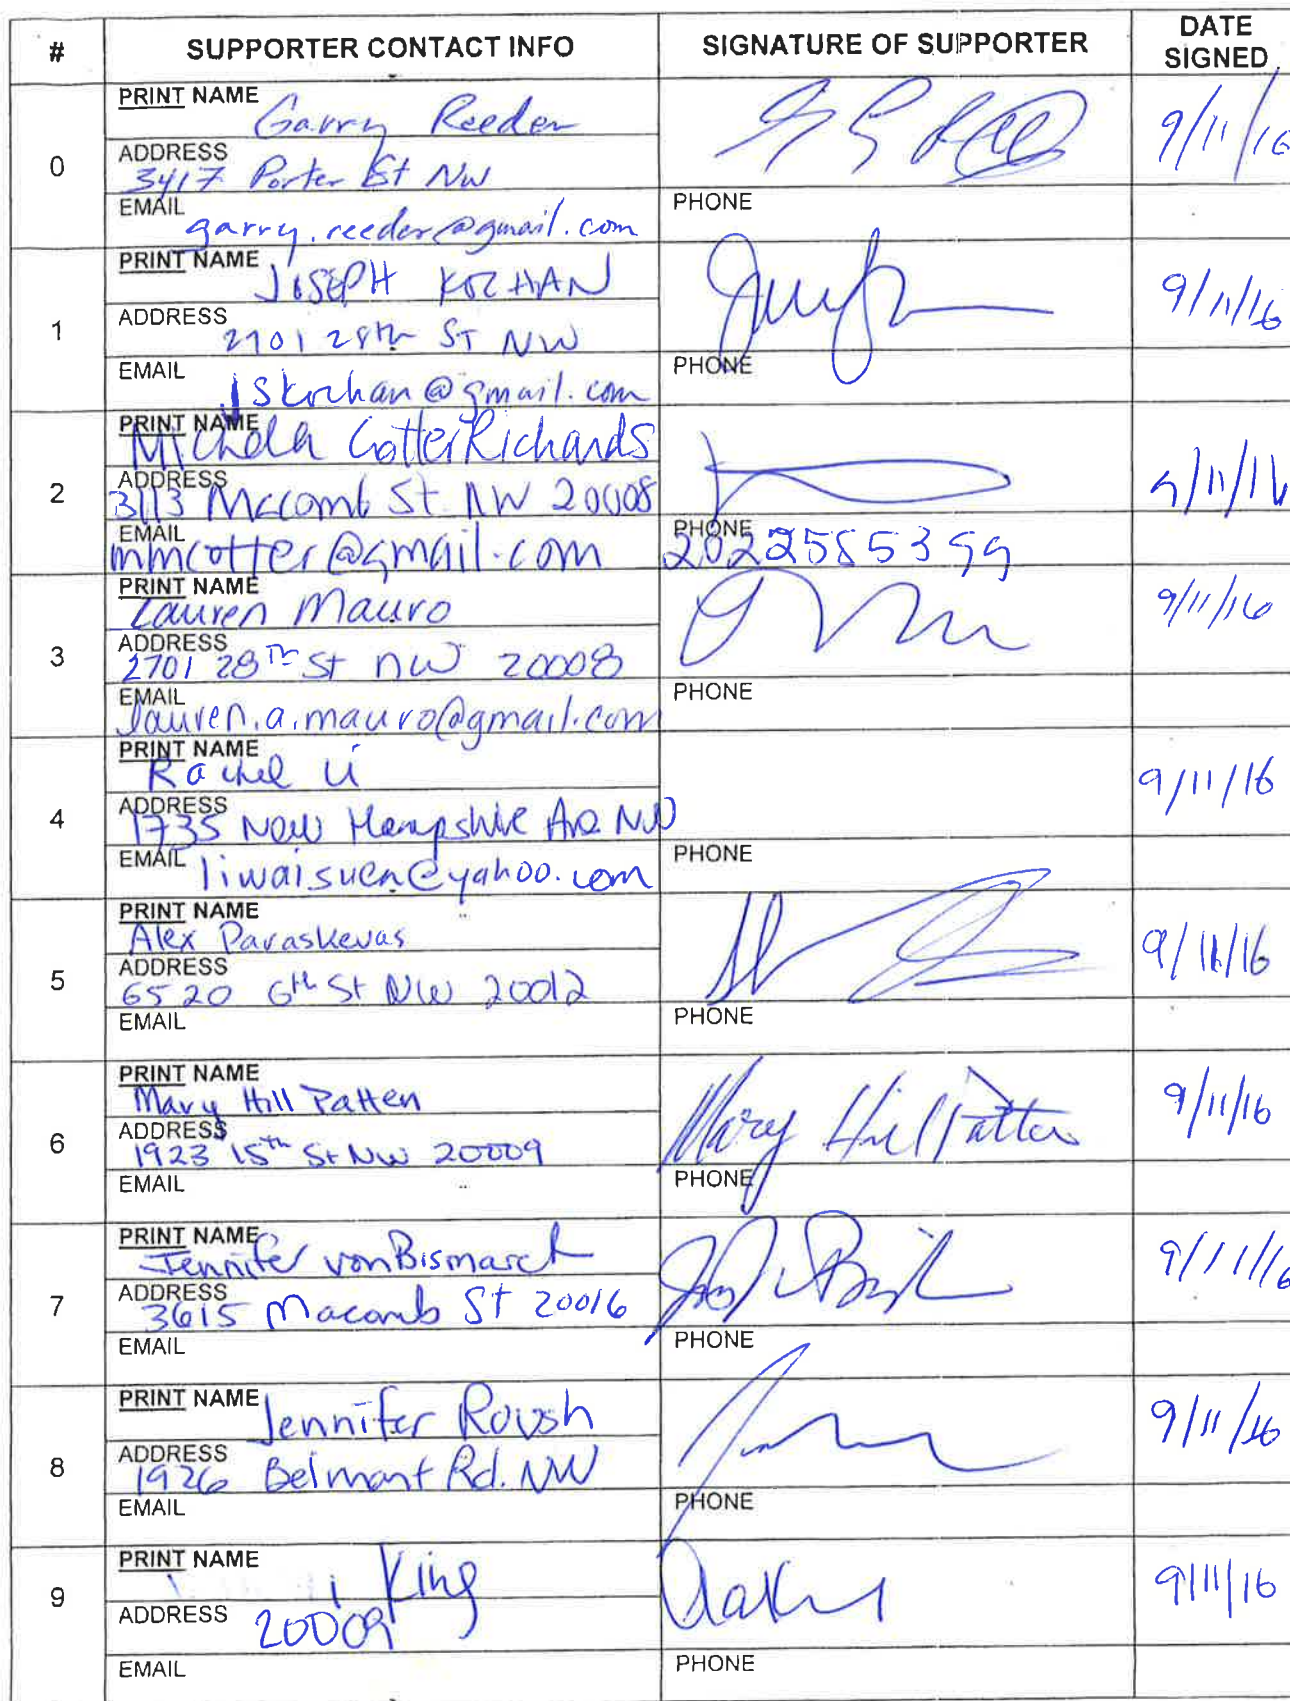 # SUPPORTER CONTACT INFO SIGNATURE OF SUPPORTER DATE SIGNED
0
PRINT NAME Garry Reeder 9/11/16
ADDRESS 3417 Porter St NW
EMAIL garry.reeder@gmail.com PHONE
1
PRINT NAME JOSEPH KOCHAN 9/11/16
ADDRESS 2701 28th ST NW
EMAIL jskochan@gmail.com PHONE
2
PRINT NAME Michela Cotter Richards 9/11/16
ADDRESS 3113 Macomb St NW 20008
EMAIL mmcotter@gmail.com PHONE 2022585399
3
PRINT NAME Lauren Mauro 9/11/16
ADDRESS 2701 28Th St NW 20008
EMAIL lauren.a.mauro@gmail.com PHONE
4
PRINT NAME Rachel Li 9/11/16
ADDRESS 1735 New Hampshire Ave NW
EMAIL liwaisuen@yahoo.com PHONE
5
PRINT NAME Alex Paraskevas 9/11/16
ADDRESS 6520 6th St NW 20012
EMAIL PHONE
6
PRINT NAME Mary Hill Patten Mary Hill Patten 9/11/16
ADDRESS 1923 15th St NW 20009
EMAIL PHONE
7
PRINT NAME Jennifer vonBismarck 9/11/16
ADDRESS 3615 Macomb St 20016
EMAIL PHONE
8
PRINT NAME Jennifer Roush 9/11/16
ADDRESS 1926 Belmont Rd. NW
EMAIL PHONE
9
PRINT NAME King 9/11/16
ADDRESS 20009
EMAIL PHONE